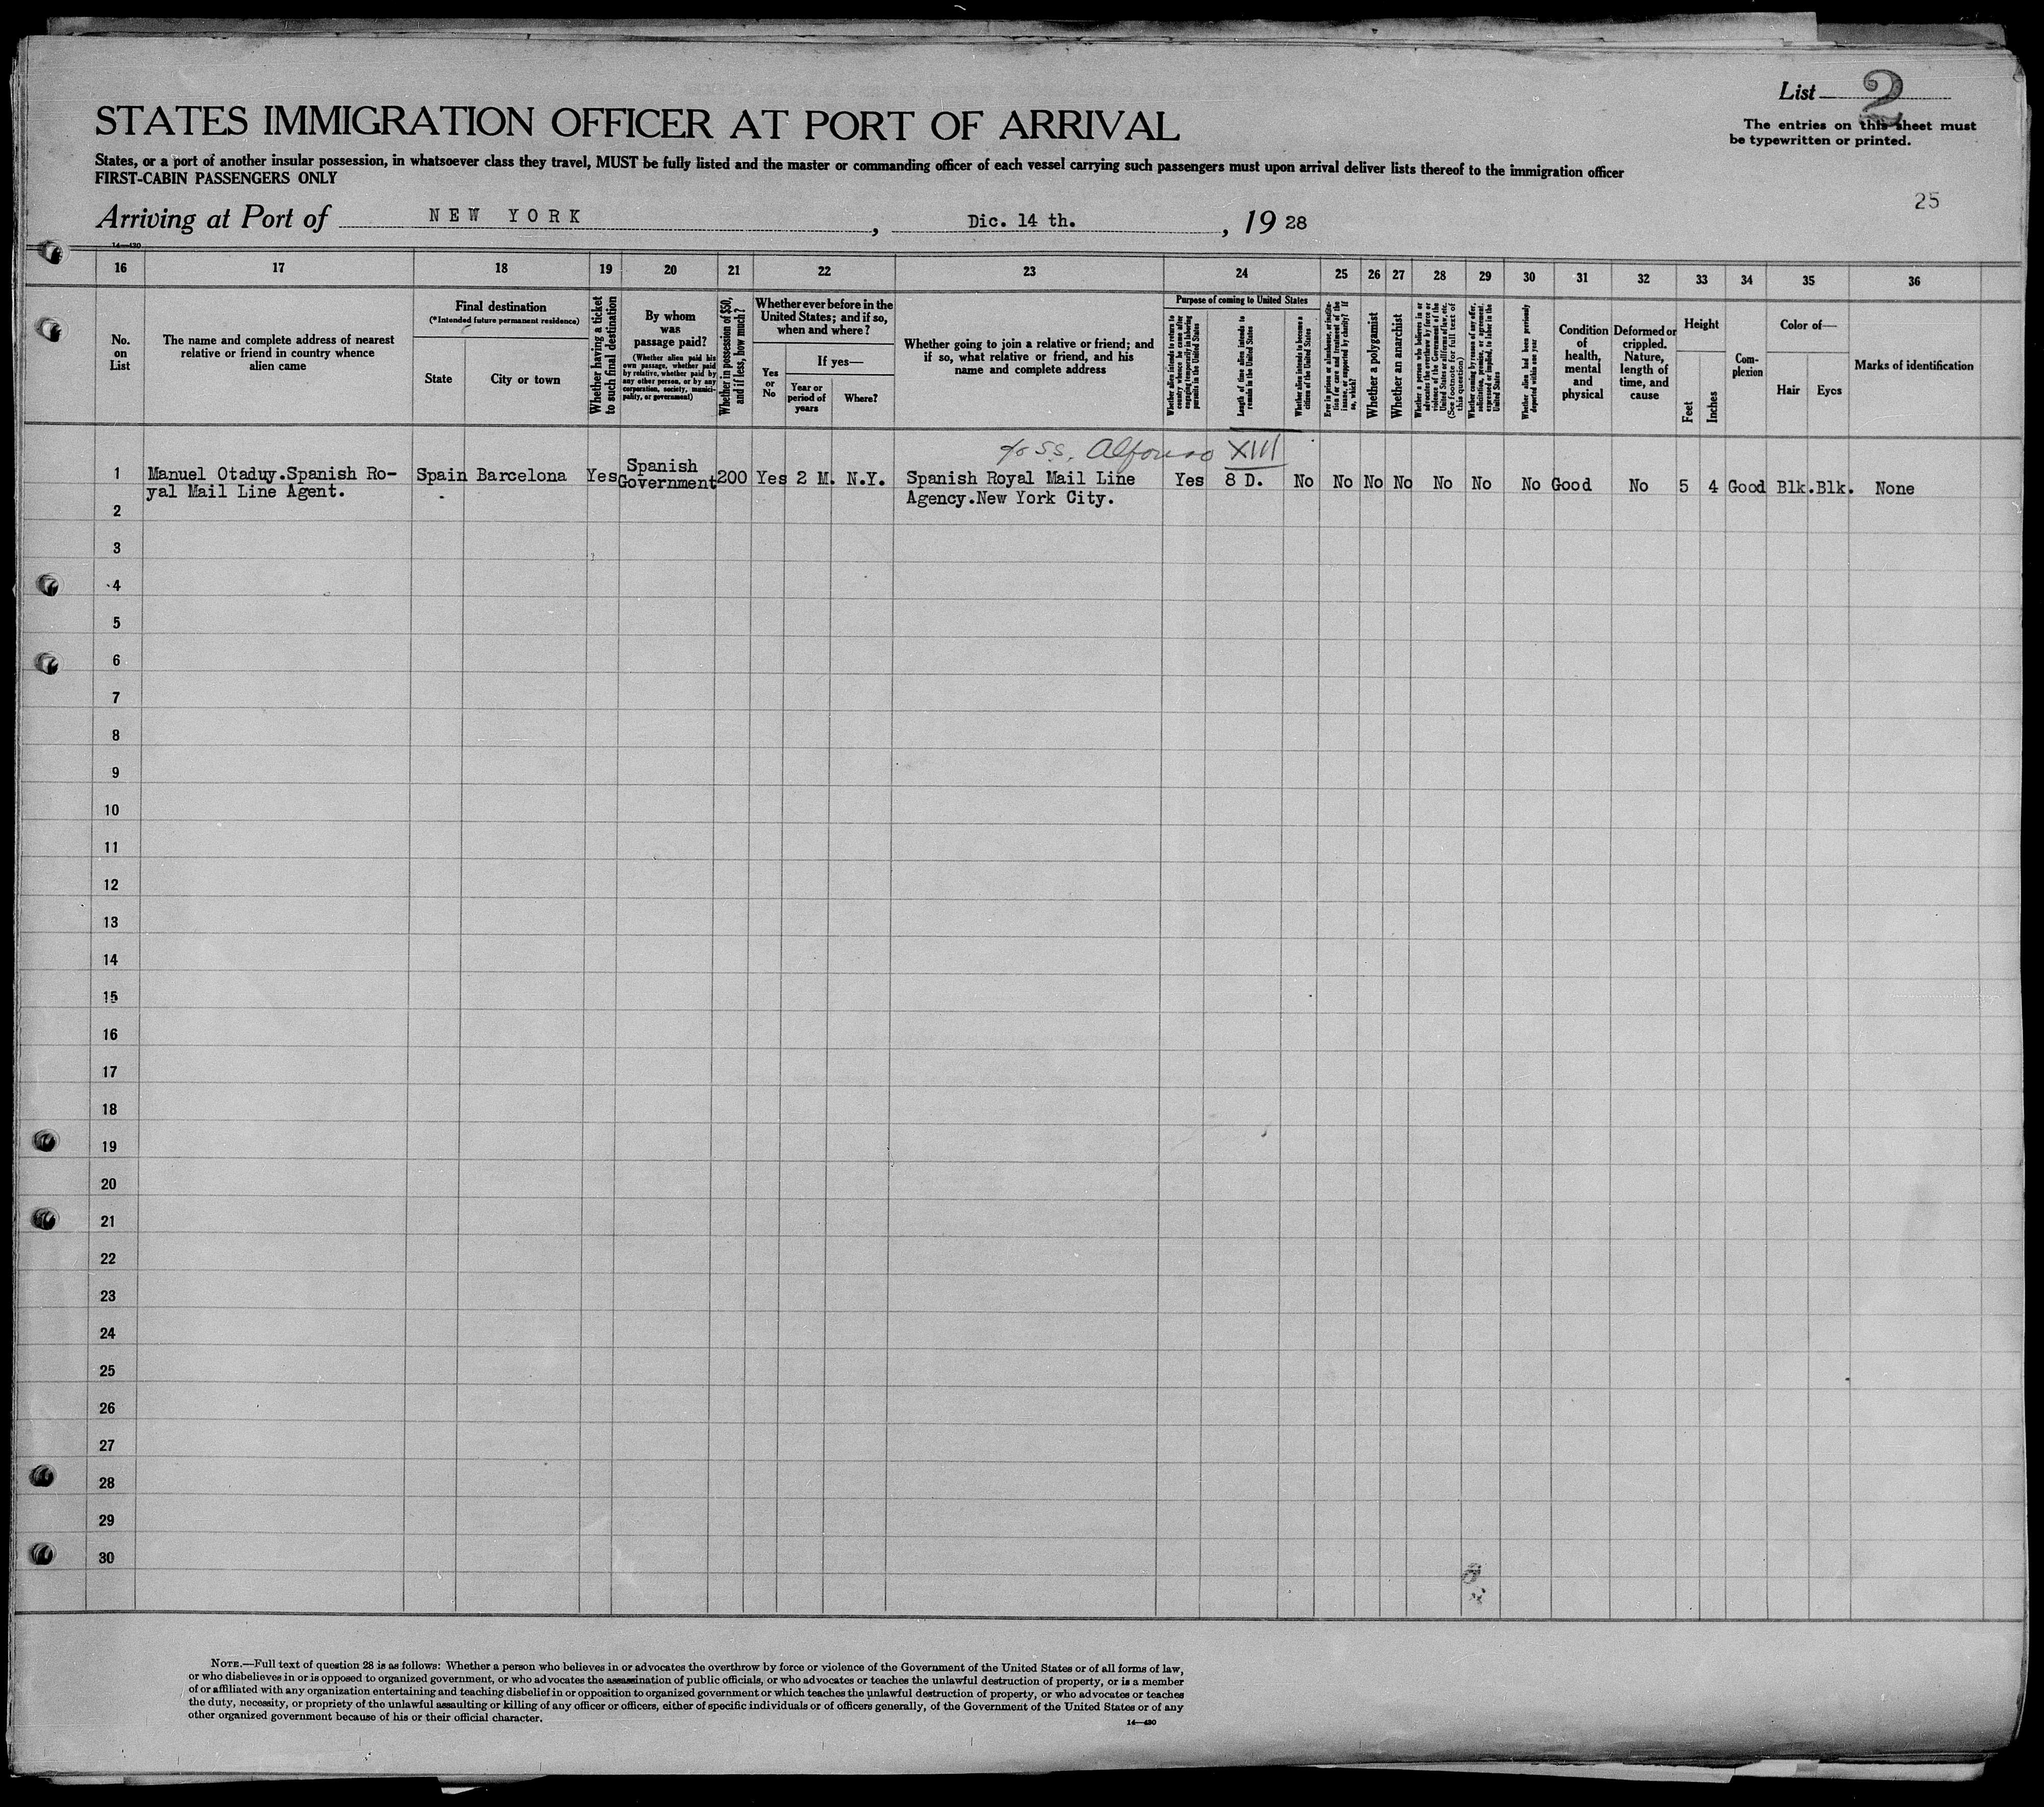 List 2
The entries on this sheet must
be typewritten or printed.
STATES IMMIGRATION OFFICER AT PORT OF ARRIVAL
States, or a port of another insular possession, in whatsoever class they travel, MUST be fully listed and the master or commanding officer of each vessel carrying such passengers must upon arrival deliver lists thereof to the immigration officer
FIRST-CABIN PASSENGERS ONLY
25
Arriving at Port of NEW YORK, Dic. 14 th., 19 28
14—430
16 17 18 19 20 21 22 23 24 25 26 27 28 29 30 31 32 33 34 35 36
No.
on
List
The name and complete address of nearest
relative or friend in country whence
alien came
Final destination
(*Intended future permanent residence)
State
City or town
Whether having a ticket
to such final destination
By whom
was
passage paid?
(Whether alien paid his
own passage, whether paid
by relative, whether paid by
any other person, or by any
corporation, society, munici-
pality, or government)
Whether in possession of $50,
and if less, how much?
Whether ever before in the
United States; and if so,
when and where?
Yes
or
No
If yes—
Year or
period of
years
Where?
Whether going to join a relative or friend; and
if so, what relative or friend, and his
name and complete address
Purpose of coming to United States
Whether alien intends to return to
country whence he came after
engaging temporarily in laboring
pursuits in the United States
Length of time alien intends to
remain in the United States
Whether alien intends to become a
citizen of the United States
Ever in prison or almshouse, or institu-
tion for care and treatment of the
insane, or supported by charity? If
so, which?
Whether a polygamist
Whether an anarchist
Whether a person who believes in or
advocates the overthrow by force or
violence of the Government of the
United States or all forms of law, etc.
(See footnote for full text of
this question)
Whether coming by reason of any offer,
solicitation, promise, or agreement,
expressed or implied, to labor in the
United States
Whether alien had been previously
deported within one year
Condition
of
health,
mental
and
physical
Deformed or
crippled.
Nature,
length of
time, and
cause
Height
Feet
Inches
Com-
plexion
Color of—
Hair
Eyes
Marks of identification
SS. Alfonso XIII
1 Manuel Otaduy.Spanish Ro- Spain Barcelona Yes Spanish 200 Yes 2 M. N.Y. Spanish Royal Mail Line Yes 8 D. No No No No No No No Good No 5 4 Good Blk. Blk. None
yal Mail Line Agent. Government Agency.New York City.
2
3
4
5
6
7
8
9
10
11
12
13
14
15
16
17
18
19
20
21
22
23
24
25
26
27
28
29
30
NOTE.—Full text of question 28 is as follows: Whether a person who believes in or advocates the overthrow by force or violence of the Government of the United States or of all forms of law,
or who disbelieves in or is opposed to organized government, or who advocates the assassination of public officials, or who advocates or teaches the unlawful destruction of property, or is a member
of or affiliated with any organization entertaining and teaching disbelief in or opposition to organized government or which teaches the unlawful destruction of property, or who advocates or teaches
the duty, necessity, or propriety of the unlawful assaulting or killing of any officer or officers, either of specific individuals or of officers generally, of the Government of the United States or of any
other organized government because of his or their official character.
14—430